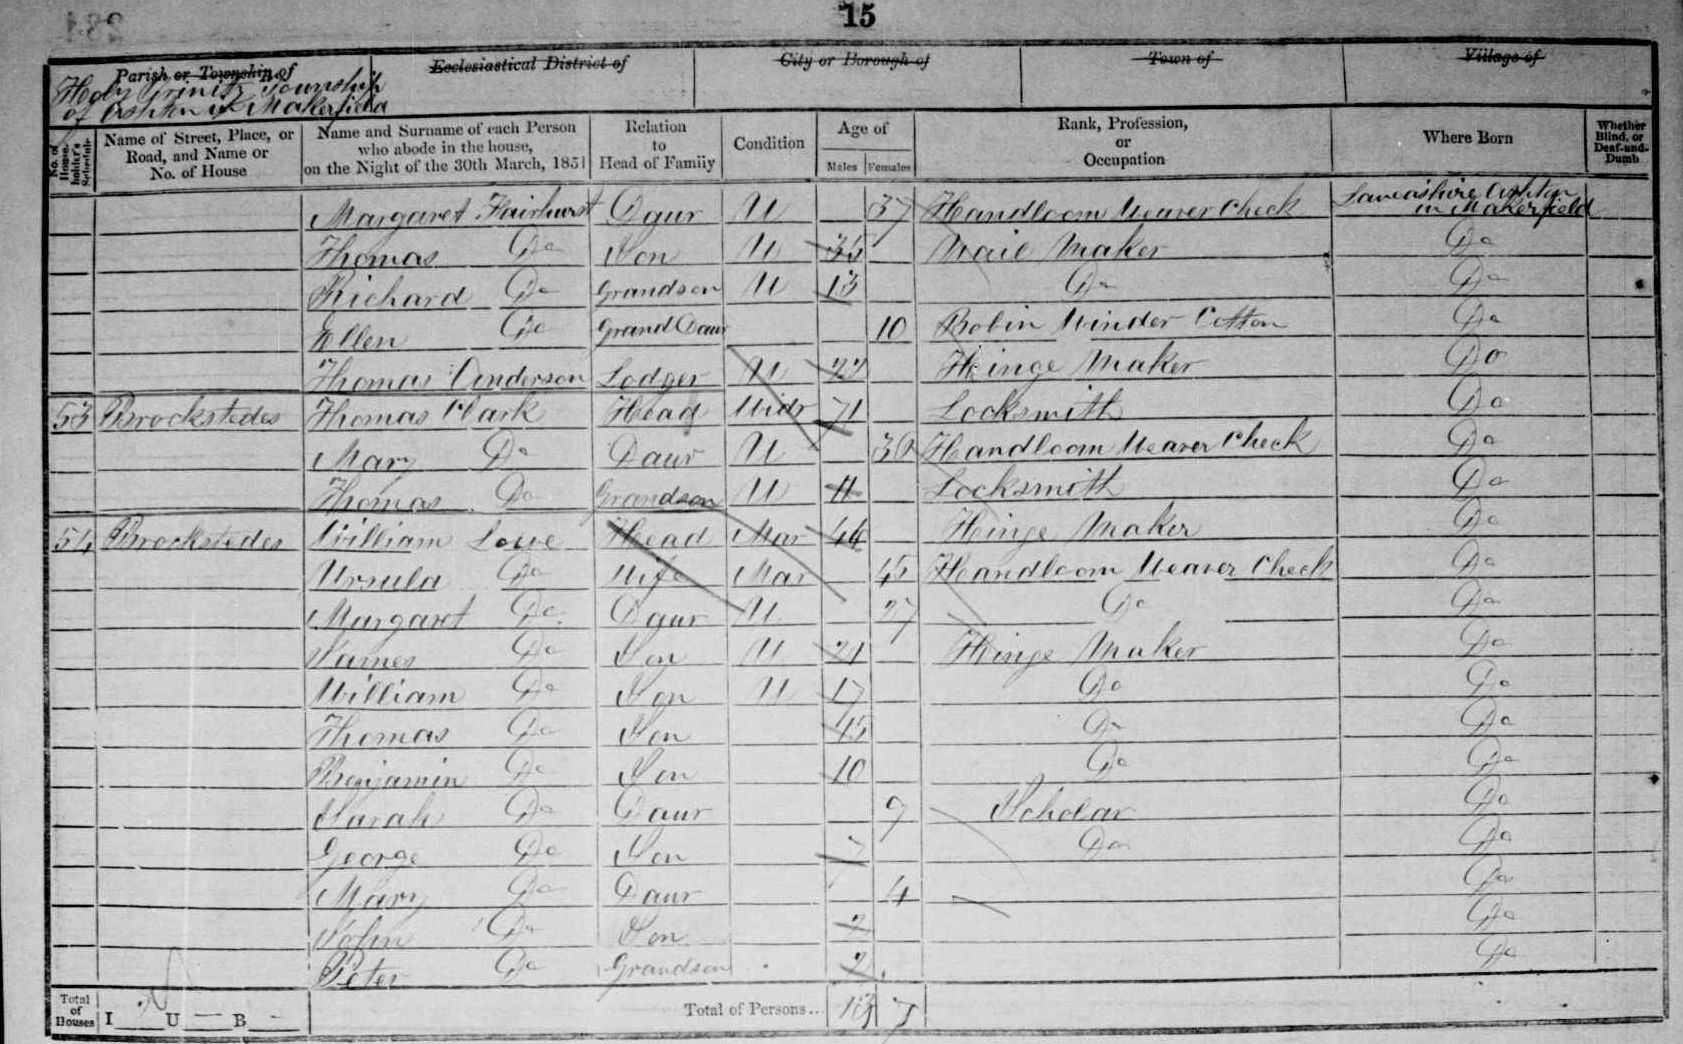 15
Parish or Township of Ecclesiastical District of City or Borough of Town of Village of
Holy Trinity Township
of Ashton in Makerfield
No. of House-holder's Schedule Name of Street, Place, or Road, and Name or No. of House Name and Surname of each Person who abode in the house, on the Night of the 30th March, 1851 Relation to Head of Family Condition Age of Males Females Rank, Profession, or Occupation Where Born Whether Blind, or Deaf-and-Dumb
Margaret Fairhurst Daur U 37 Handloom Weaver Check Lancashire Ashton in Makerfield
Thomas Do Son U 35 Nail Maker Do
Richard Do Grandson U 13 Do Do
Ellen Do Grand Daur 10 Bobin Winder Cotton Do
Thomas Anderson Lodger U 22 Hinge Maker Do
53 Brockstedes Thomas Clark Head Widr 71 Locksmith Do
Mary Do Daur U 30 Handloom Weaver Check Do
Thomas Do Grandson U 11 Locksmith Do
54 Brockstedes William Lowe Head Mar 46 Hinge Maker Do
Ursula Do Wife Mar 45 Handloom Weaver Check Do
Margaret Do Daur U 27 Do Do
James Do Son U 21 Hinge Maker Do
William Do Son U 17 Do Do
Thomas Do Son 15 Do Do
Benjamin Do Son 10 Do Do
Sarah Do Daur 9 Scholar Do
George Do Son 7 Do Do
Mary Do Daur 4 Do
John Do Son 2 Do
Peter Do Grandson 2 Do
Total of Houses I 2 U — B - Total of Persons... 13 7